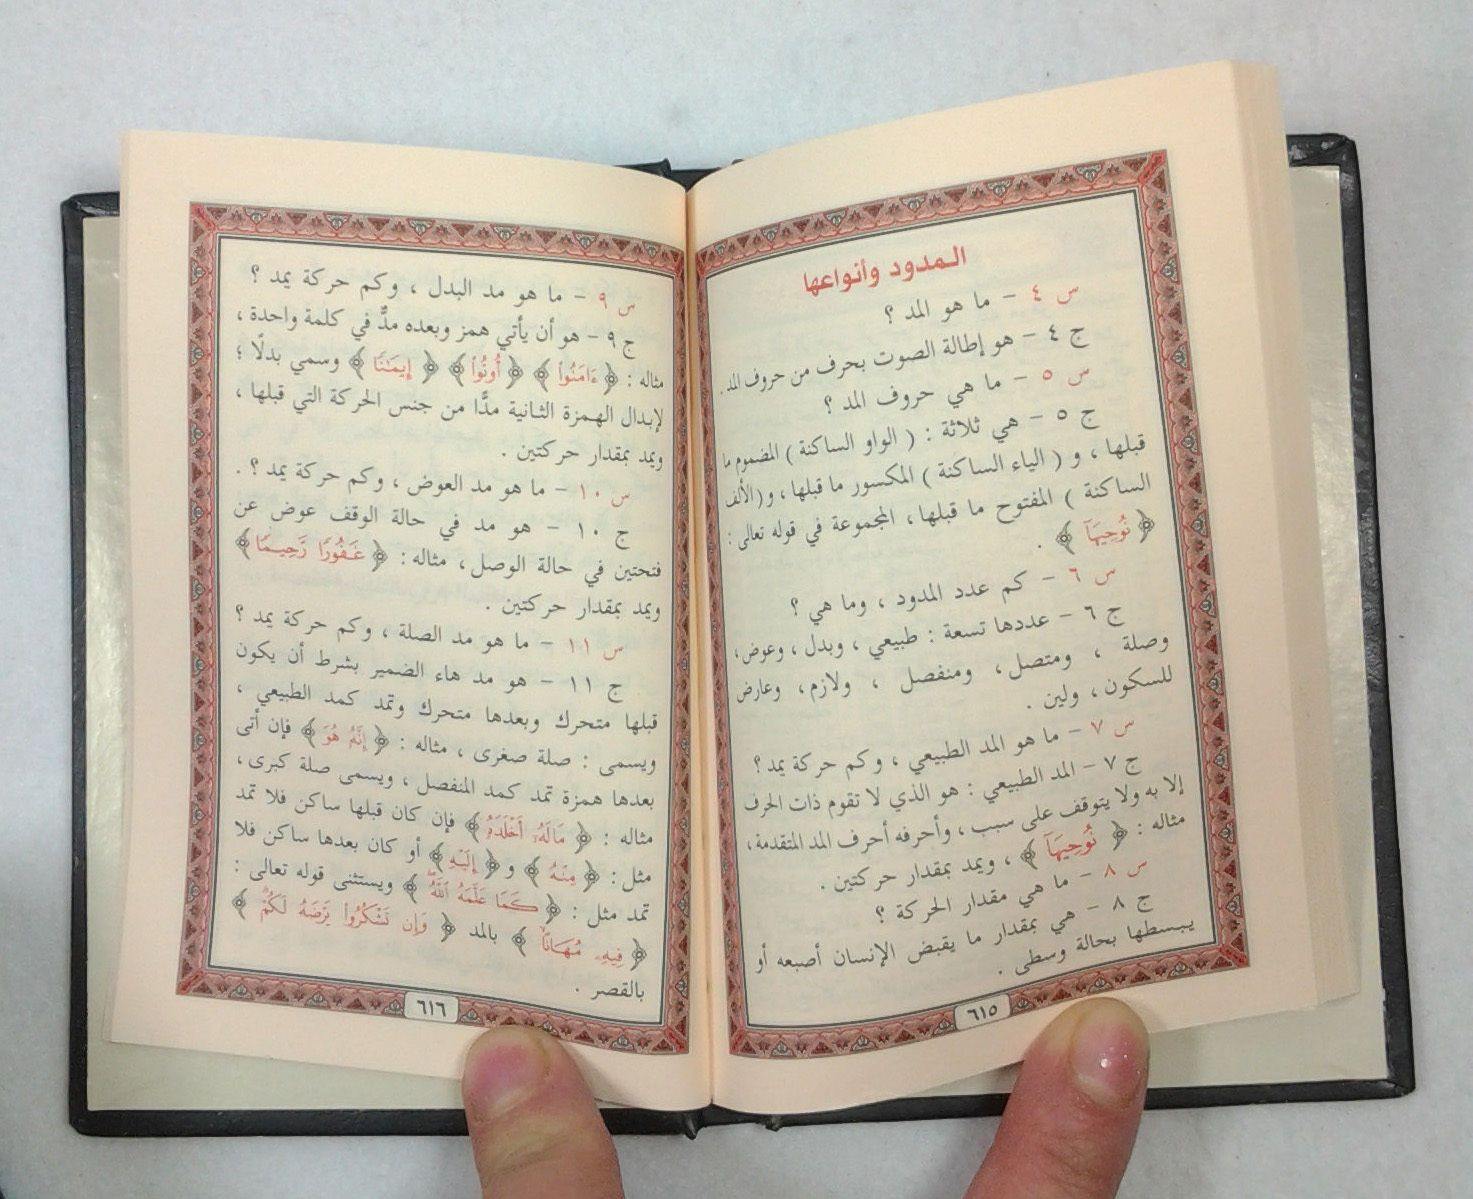 المدود وأنواعها
س ٤ - ما هو المد ؟
ج ٤ - هو إطالة الصوت بحرف من حروف المد .
س ٥ - ما هي حروف المد ؟
ج ٥ - هي ثلاثة : ( الواو الساكنة ) المضموم ما
قبلها ، و ( الياء الساكنة ) المكسور ما قبلها ، و ( الألف
الساكنة ) المفتوح ما قبلها ، المجموعة في قوله تعالى :
﴿ نُوحِيهَآ ﴾ .
س ٦ - كم عدد المدود ، وما هي ؟
ج ٦ - عددها تسعة : طبيعي ، وبدل ، وعوض ،
وصلة ، ومتصل ، ومنفصل ، ولازم ، وعارض
للسكون ، ولين .
س ٧ - ما هو المد الطبيعي ، وكم حركة يمد ؟
ج ٧ - المد الطبيعي : هو الذي لا تقوم ذات الحرف
إلا به ولا يتوقف على سبب ، وأحرفه أحرف المد المتقدمة ،
مثاله : ﴿ نُوحِيهَآ ﴾ ، ويمد بمقدار حركتين .
س ٨ - ما هي مقدار الحركة ؟
ج ٨ - هي بمقدار ما يقبض الإنسان أصبعه أو
يبسطها بحالة وسطى .
٦١٥
س ٩ - ما هو مد البدل ، وكم حركة يمد ؟
ج ٩ - هو أن يأتي همز وبعده مدٌّ في كلمة واحدة ،
مثاله : ﴿ ءَامَنُوا۟ ﴾ ﴿ أُوتُوا۟ ﴾ ﴿ إِيمَٰنًا ﴾ وسمي بدلًا ؛
لإبدال الهمزة الثانية مدًّا من جنس الحركة التي قبلها ،
ويمد بمقدار حركتين .
س ١٠ - ما هو مد العوض ، وكم حركة يمد ؟ .
ج ١٠ - هو مد في حالة الوقف عوض عن
فتحتين في حالة الوصل ، مثاله : ﴿ غَفُورًا رَّحِيمًا ﴾
ويمد بمقدار حركتين .
س ١١ - ما هو مد الصلة ، وكم حركة يمد ؟
ج ١١ - هو مد هاء الضمير بشرط أن يكون
قبلها متحرك وبعدها متحرك وتمد كمد الطبيعي ،
ويسمى : صلة صغرى ، مثاله : ﴿ إِنَّهُۥ هُوَ ﴾ فإن أتى
بعدها همزة تمد كمد المنفصل ، ويسمى صلة كبرى ،
مثاله : ﴿ مَالَهُۥٓ أَخْلَدَهُۥ ﴾ فإن كان قبلها ساكن فلا تمد
مثل : ﴿ مِنْهُ ﴾ و ﴿ إِلَيْهِ ﴾ أو كان بعدها ساكن فلا
تمد مثل : ﴿ كَمَا عَلَّمَهُ ٱللَّهُ ﴾ ويستثنى قوله تعالى :
﴿ فِيهِۦ مُهَانًا ﴾ بالمد ﴿ وَإِن تَشْكُرُوا۟ يَرْضَهُ لَكُمْ ﴾
بالقصر .
٦١٦